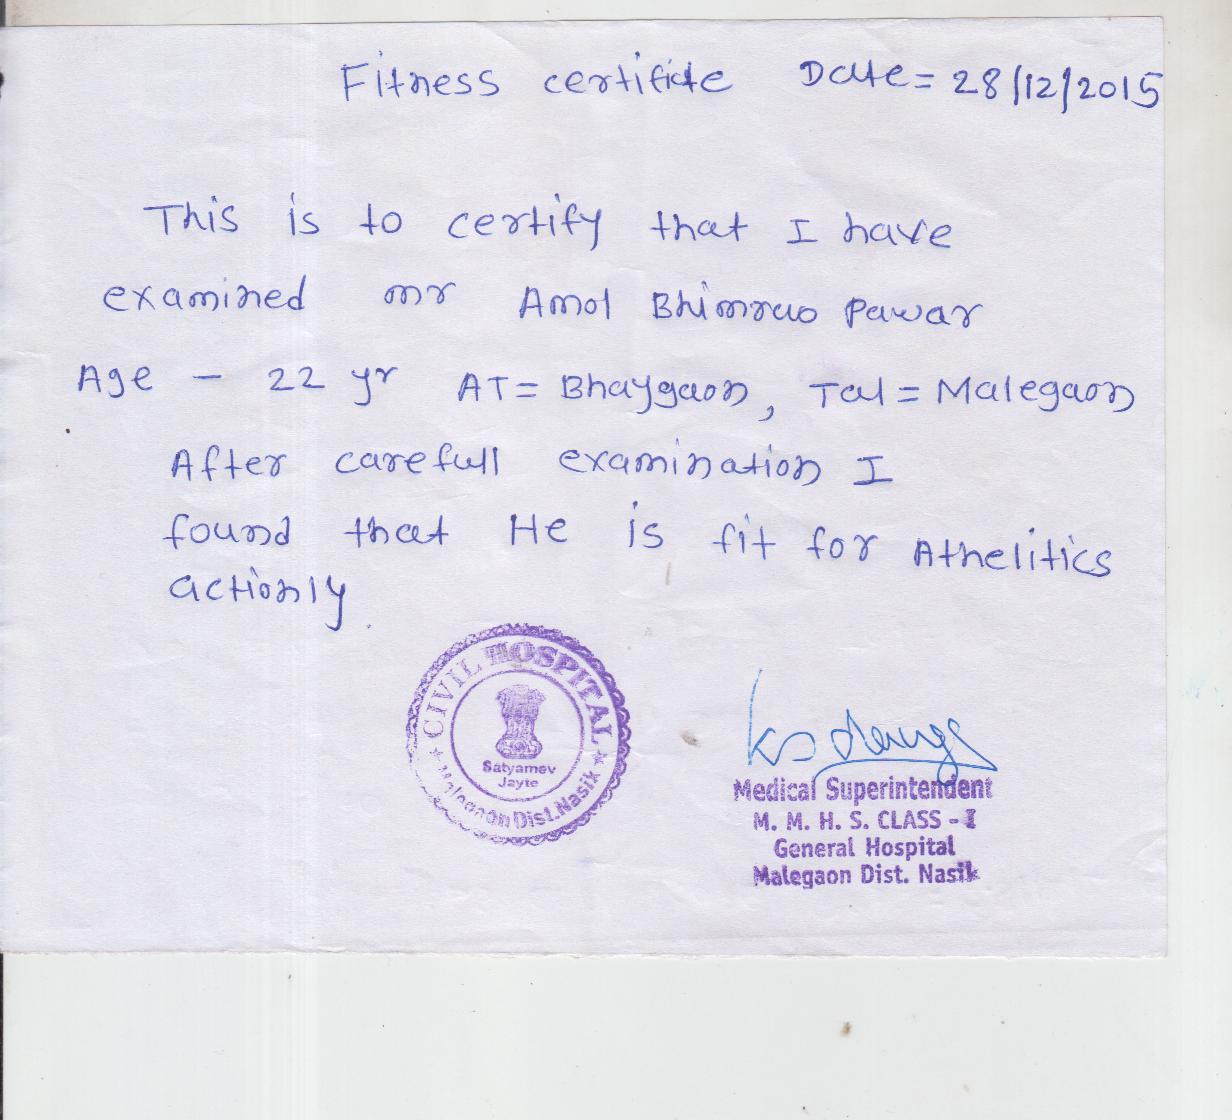 Fitness certificte Date= 28/12/2015
This is to certify that I have
examined mr Amol Bhimrao Pawar
Age - 22 yr AT= Bhaygaon, Tal= Malegaon
After carefull examination I
found that He is fit for Athelitics
actionly.
CIVIL HOSPITAL
Satyamev
Jayte
Malegaon Dist.Nasik
Medical Superintendent
M. M. H. S. CLASS - I
General Hospital
Malegaon Dist. Nasik